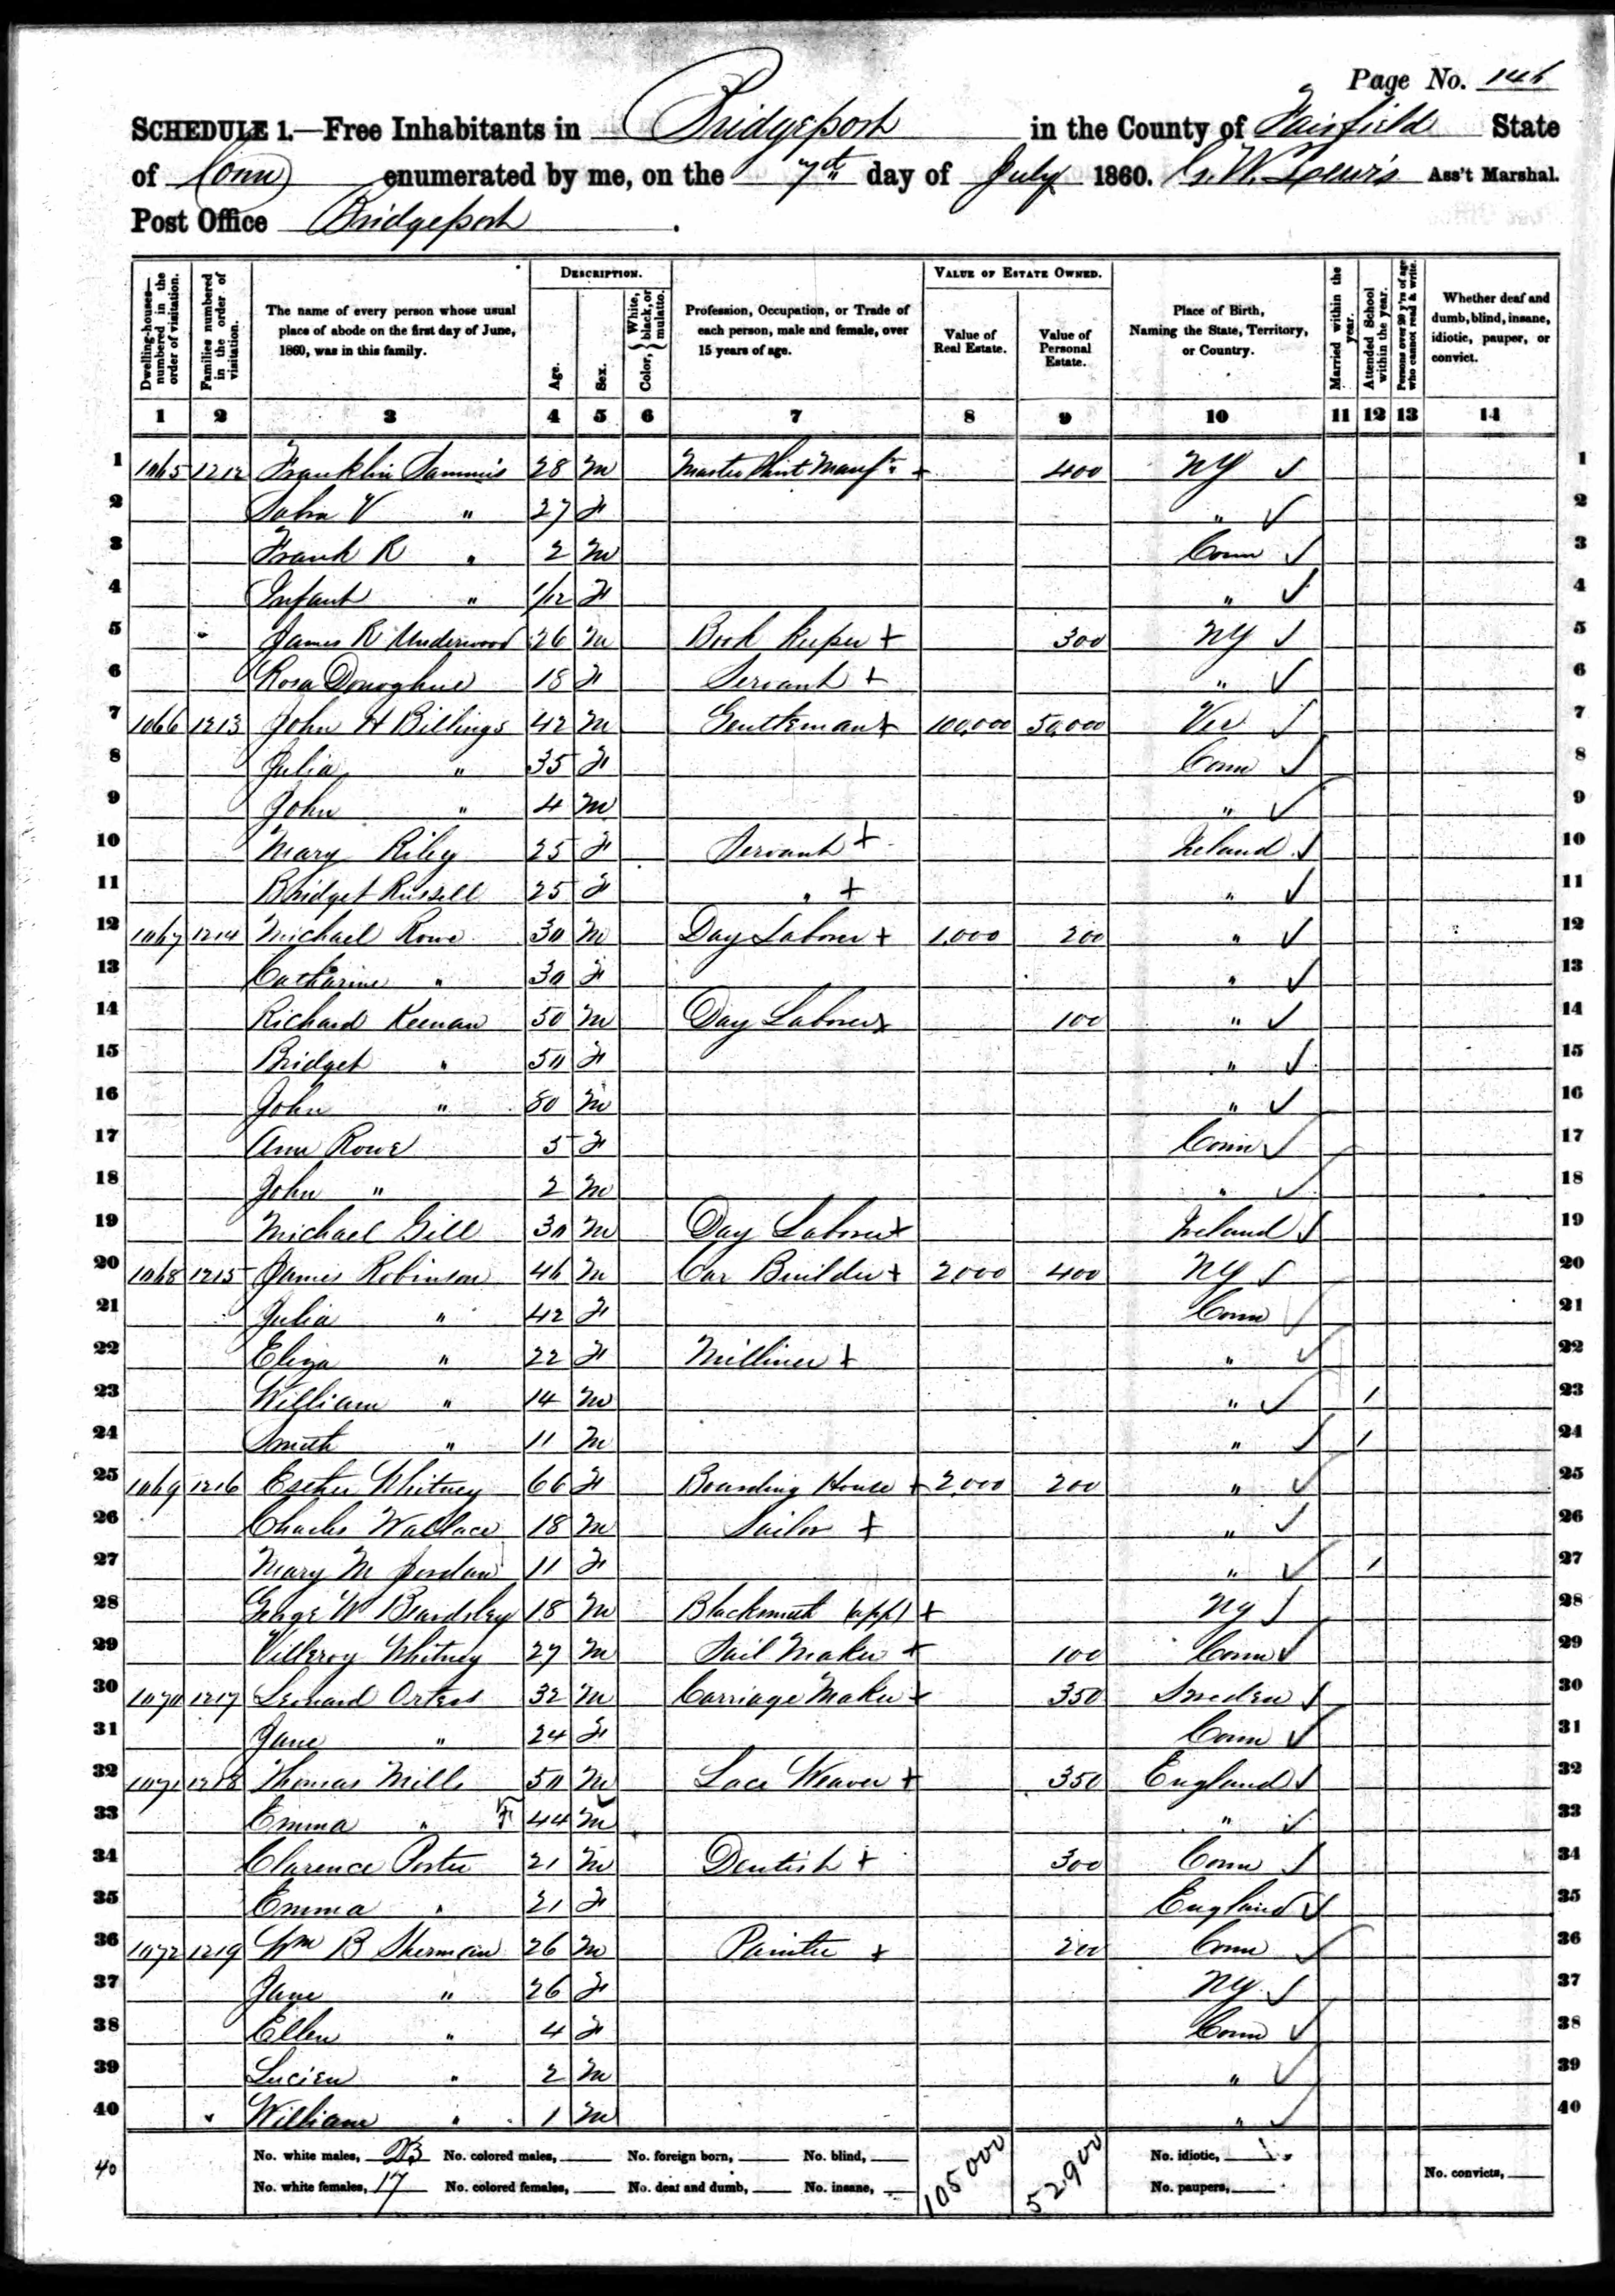 Page No. 146
SCHEDULE 1.—Free Inhabitants in Bridgeport in the County of Fairfield State
of Conn enumerated by me, on the 7th day of July 1860. G. W. Lewis Ass't Marshal.
Post Office Bridgeport.
Dwelling-houses—numbered in the order of visitation. Families numbered in the order of visitation. The name of every person whose usual place of abode on the first day of June, 1860, was in this family. DESCRIPTION. Age. Sex. Color, White, black, or mulatto. Profession, Occupation, or Trade of each person, male and female, over 15 years of age. VALUE OF ESTATE OWNED. Value of Real Estate. Value of Personal Estate. Place of Birth, Naming the State, Territory, or Country. Married within the year. Attended School within the year. Persons over 20 y'rs of age who cannot read & write. Whether deaf and dumb, blind, insane, idiotic, pauper, or convict.
1 2 3 4 5 6 7 8 9 10 11 12 13 14
1 1065 1212 Franklin Sammis 28 M Master Shirt Manfr + 400 NY ✓ 1
2 V " 27 F " ✓ 2
3 Frank R " 2 M Conn ✓ 3
4 Infant " 1/12 F " ✓ 4
5 James R Underwood 26 M Book Keeper + 300 NY ✓ 5
6 Rosa Donoghue 18 F Servant + " ✓ 6
7 1066 1213 John H Billings 42 M Gentleman + 100,000 50,000 Ver ✓ 7
8 Julia " 35 F Conn ✓ 8
9 John " 4 M " ✓ 9
10 Mary Riley 25 F Servant + Ireland ✓ 10
11 Bridget Russell 25 F " + " ✓ 11
12 1067 1214 Michael Rowe 30 M Day Laborer + 1,000 200 " ✓ 12
13 Catharine " 30 F " ✓ 13
14 Richard Keenan 50 M Day Laborer + 100 " ✓ 14
15 Bridget " 50 F " ✓ 15
16 John " 80 M " ✓ 16
17 Ann Rowe 5 F Conn ✓ 17
18 John " 2 M " ✓ 18
19 Michael Gill 30 M Day Laborer + Ireland ✓ 19
20 1068 1215 James Robinson 46 M Car Builder + 2000 400 NY ✓ 20
21 Julia " 42 F Conn ✓ 21
22 Eliza " 22 F Milliner + " ✓ 22
23 William " 14 M " ✓ 1 23
24 Smith " 11 M " ✓ 1 24
25 1069 1216 Esther Whitney 66 F Boarding House + 2,000 200 " ✓ 25
26 Charles Wallace 18 M Sailor + " ✓ 26
27 Mary M Jordan 11 F " ✓ 1 27
28 George W Beardsley 18 M Blacksmith (app) + NY ✓ 28
29 Villeroy Whitney 27 M Sail Maker + 100 Conn ✓ 29
30 1070 1217 Leonard 32 M Carriage Maker + 350 Sweden ✓ 30
31 Jane " 24 F Conn ✓ 31
32 1071 1218 Thomas Mills 50 M Lace Weaver + 350 England ✓ 32
33 Emma " F 44 M " ✓ 33
34 Clarence Porter 21 M Dentist + 300 Conn ✓ 34
35 Emma " 21 F England ✓ 35
36 1072 1219 Wm B Sherman 26 M Painter + 200 Conn ✓ 36
37 Jane " 26 F NY ✓ 37
38 Ellen " 4 F Conn ✓ 38
39 Lucien " 2 M " ✓ 39
40 William " 1 M " ✓ 40
40 No. white males, 23 No. colored males, No. foreign born, No. blind, 105000 52,900 No. idiotic,
No. white females, 17 No. colored females, No. deaf and dumb, No. insane, No. paupers, No. convicts,